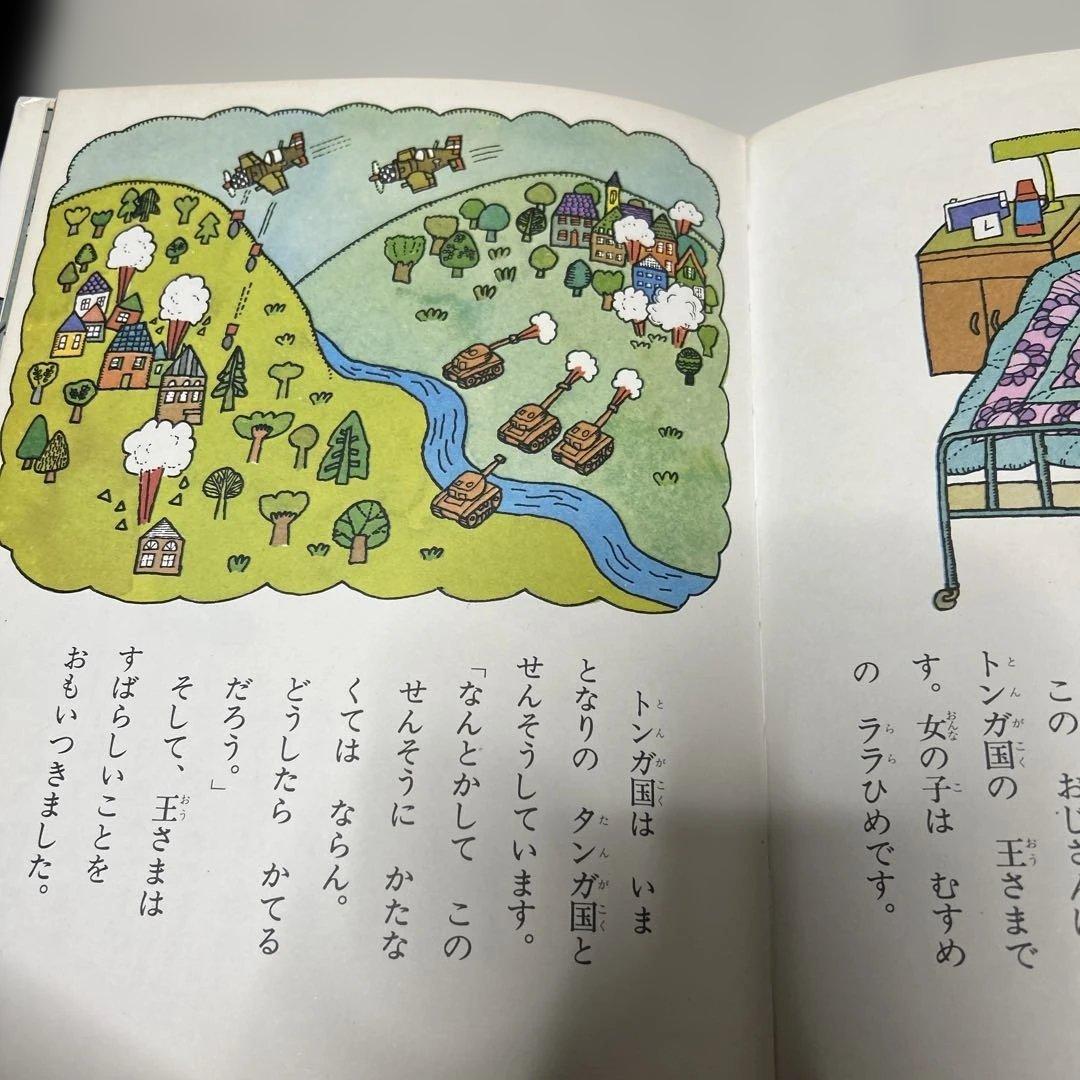 この おじさんは
トンガ国の 王さまで
す。女の子は むすめ
の ララひめです。
トンガ国は いま
となりの タンガ国と
せんそうしています。
「なんどかして この
せんそうに かたな
くては ならん。
どうしたら かてる
だろう。」
そして、王さまは
すばらしいことを
おもいつきました。